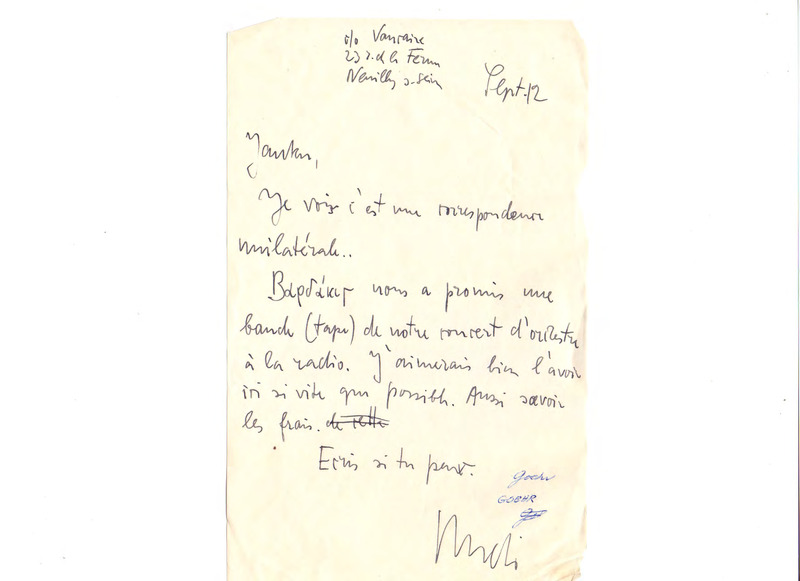 c/o
23 r. de la Ferm
Neuilly s-Sein
Sept. 12
Je vois c'est une correspondence
unilatérale..
Βαρδάκης nous a promis une
bande (tape) de notre concert d'orchestre
à la radio. J'aimerais bien l'avoir
ici si vite que possible. Aussi savoir
les frais. de cette
Ecris si tu peux.
Goehr
GOEHR